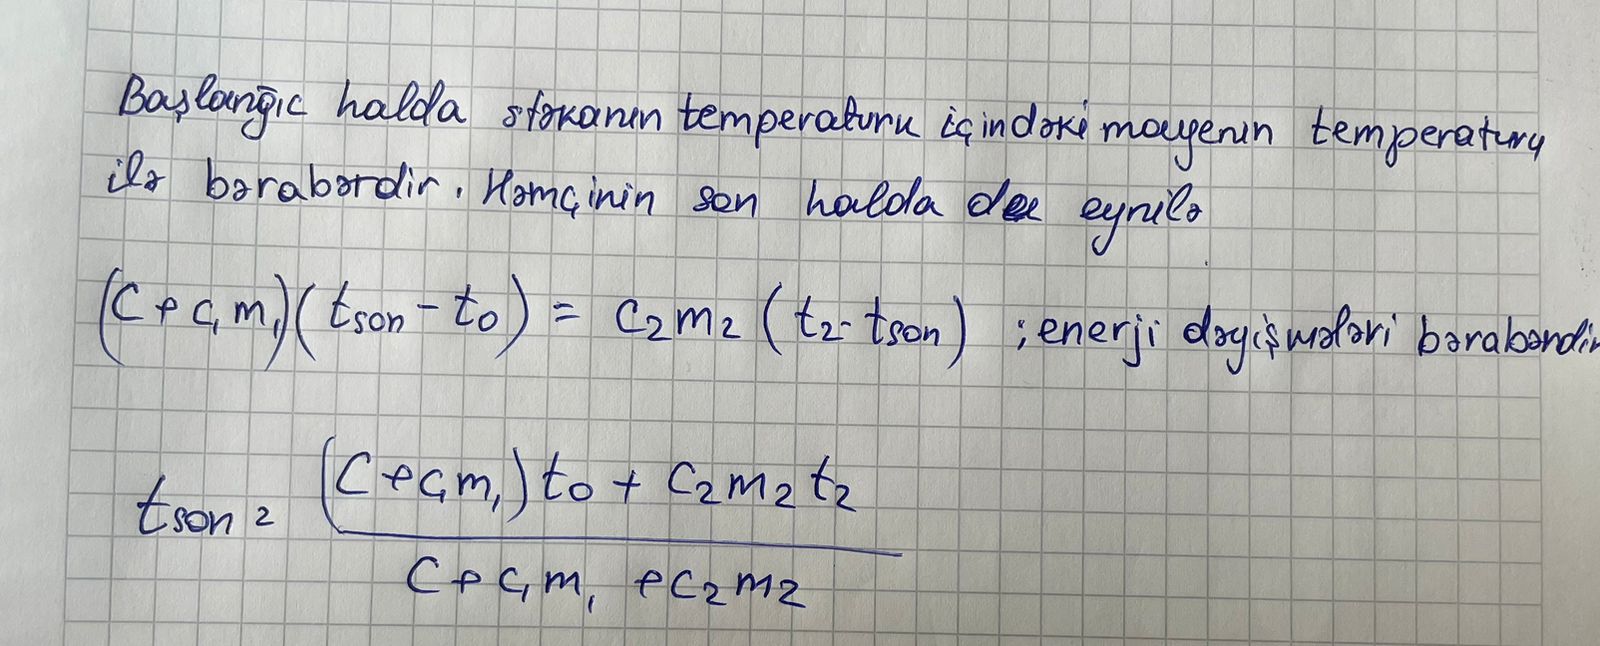 Başlanğıc halda stəkanın temperaturu içindəki mayenin temperaturu
ilə bərabərdir. Həmçinin son halda da eynilə
(C + c₁m₁)(tson - t₀) = c₂m₂(t₂ - tson) ; enerji dəyişmələri bərabərdir
tson = ((C + c₁m₁)t₀ + c₂m₂t₂) / (C + c₁m₁ + c₂m₂)